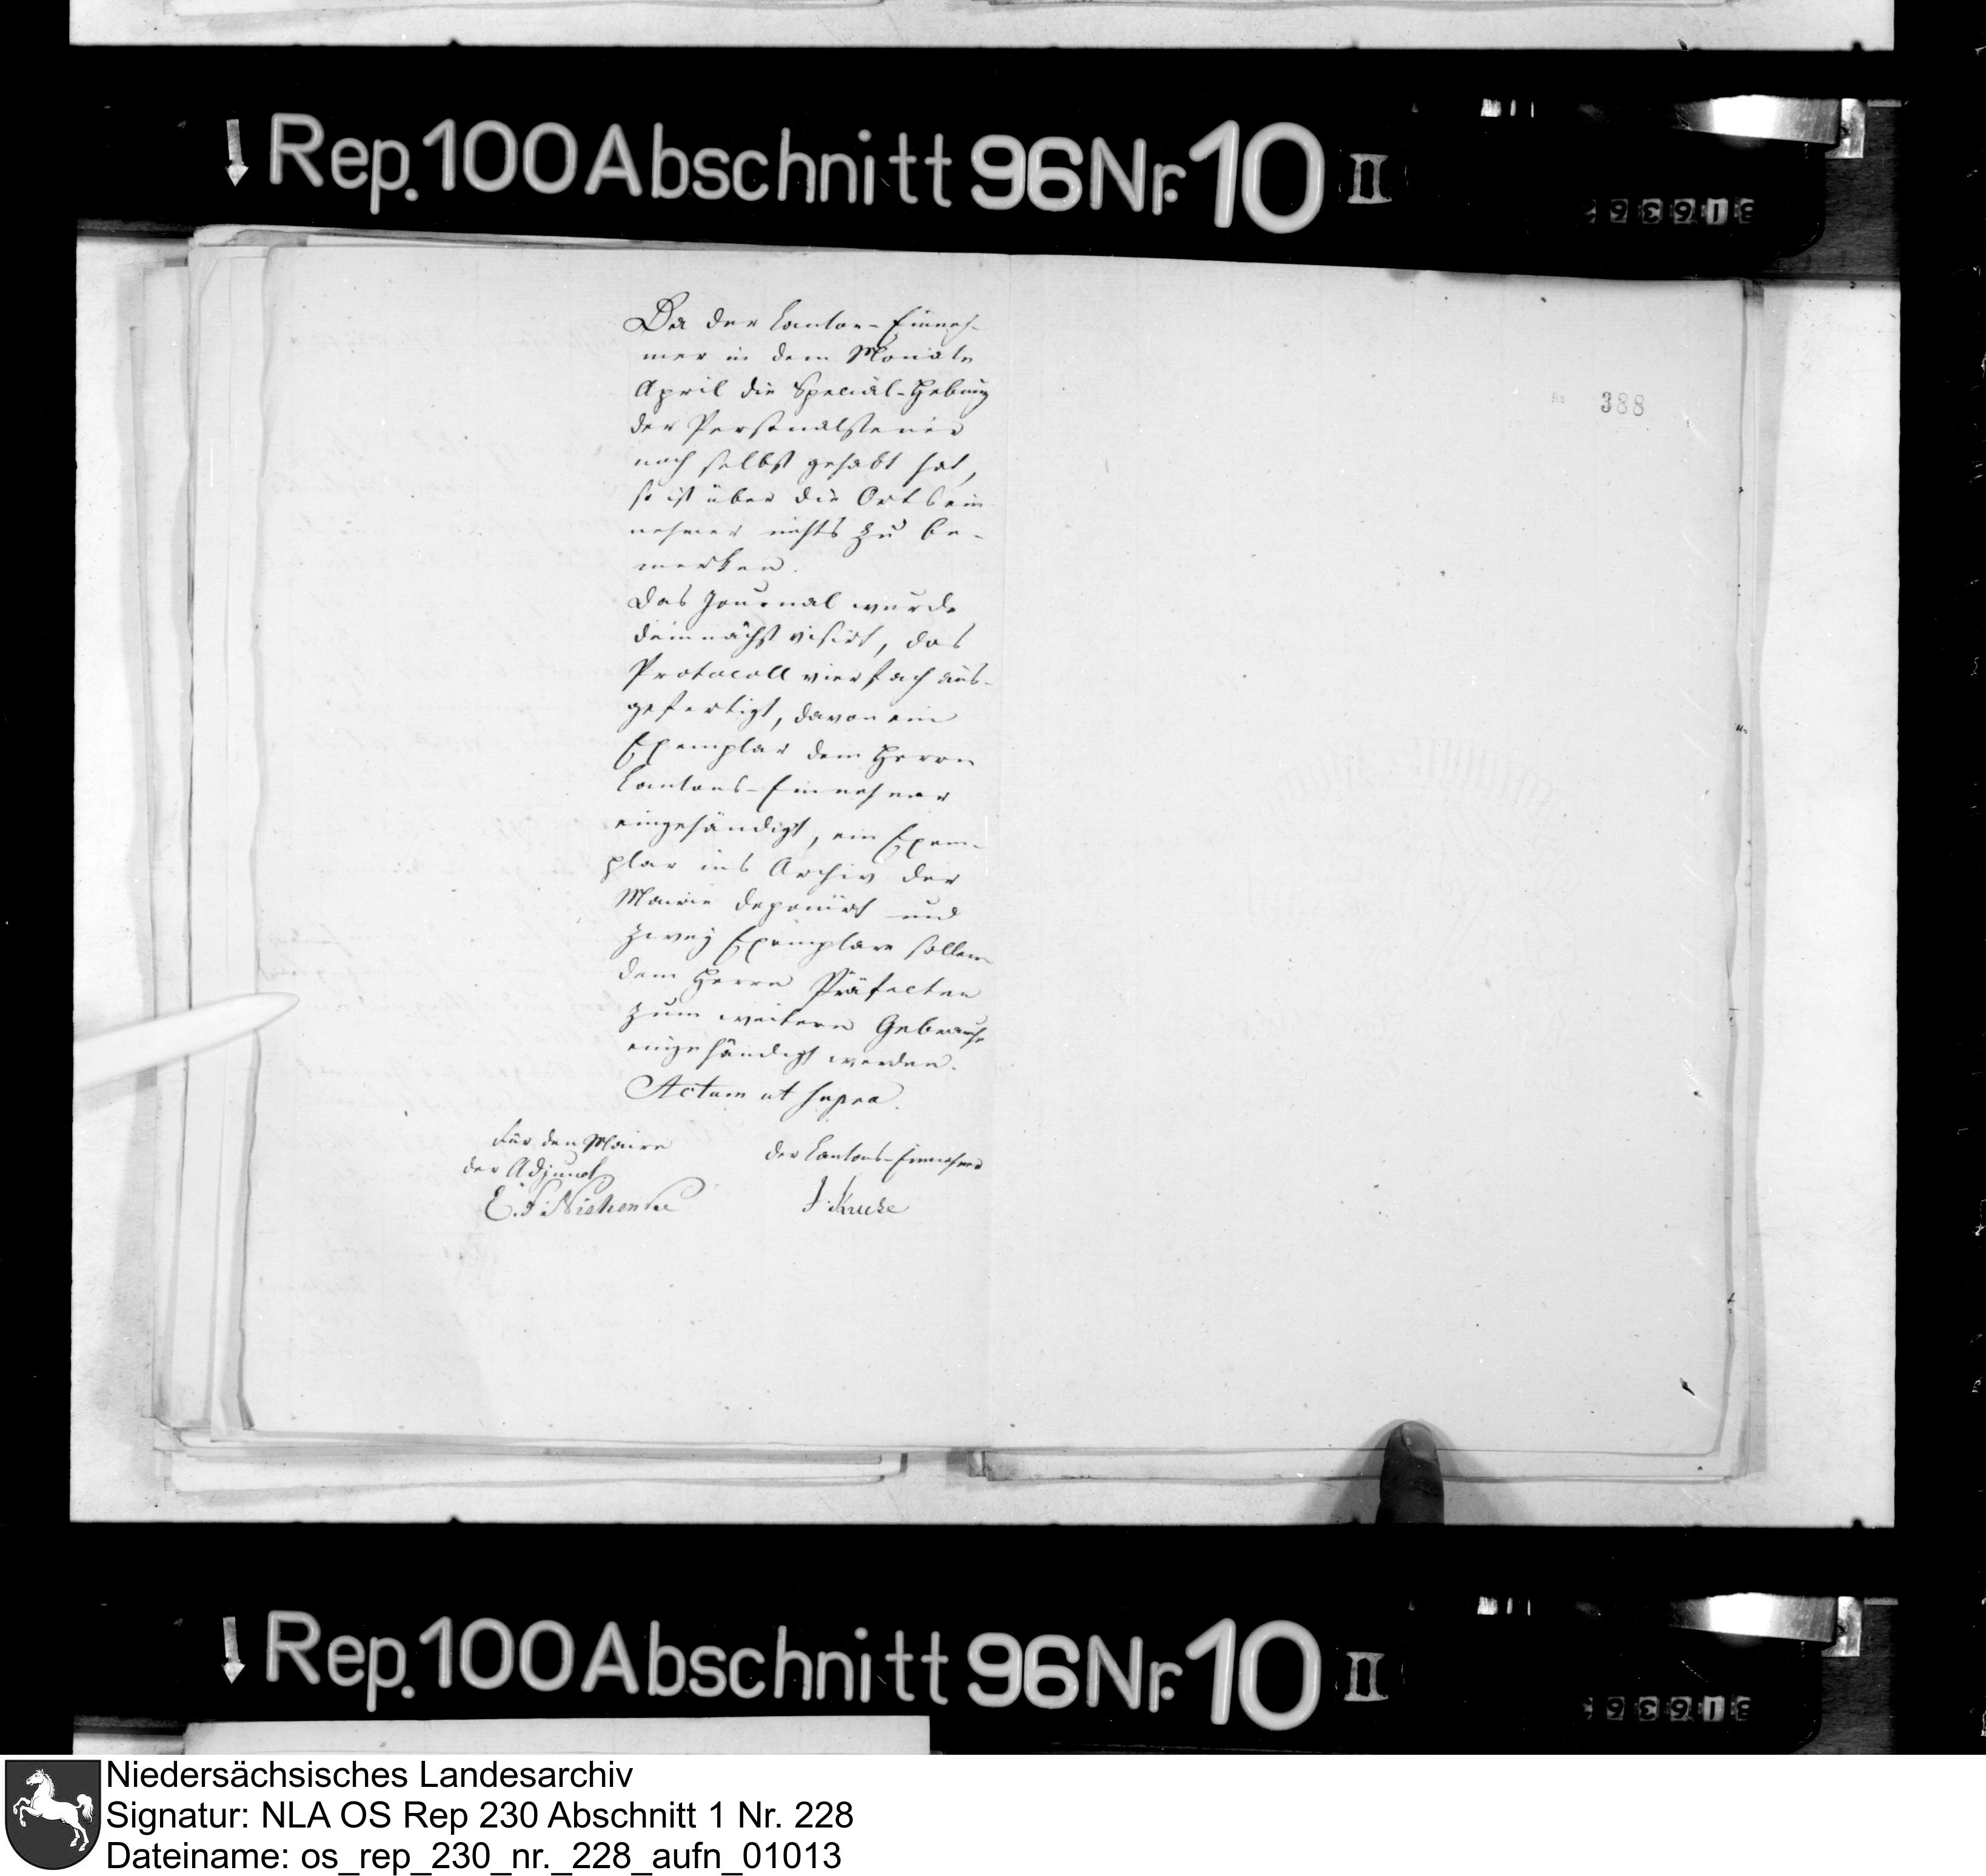 Rep. 100 Abschnitt 96 Nr. 10 II
Da der Canton-Einneh-
mer in dem Monate
April die Special-Hebung
der Personalsteuer
noch selbst gehabt hat,
so ist über die Ortsein
nehmer nichts zu be-
merken.
Das Journal wurde
demnächst visirt, das
Protocoll vierfach aus-
gefertigt, davon ein
Exemplar dem Herrn
Cantons-Einnehmer
eingehändigt, ein Exem-
plar ins Archiv der
Mairie deponirt und
zwey Exemplare sollen
dem Herrn Präfecten
zum weitern Gebrauche
eingehändigt werden.
Actum ut supra.
Für den Maire
der Adjunct
E. F.
der Cantons-Einnehmer
J. Kruse
388
Rep. 100 Abschnitt 96 Nr. 10 II
Niedersächsisches Landesarchiv
Signatur: NLA OS Rep 230 Abschnitt 1 Nr. 228
Dateiname: os_rep_230_nr._228_aufn_01013